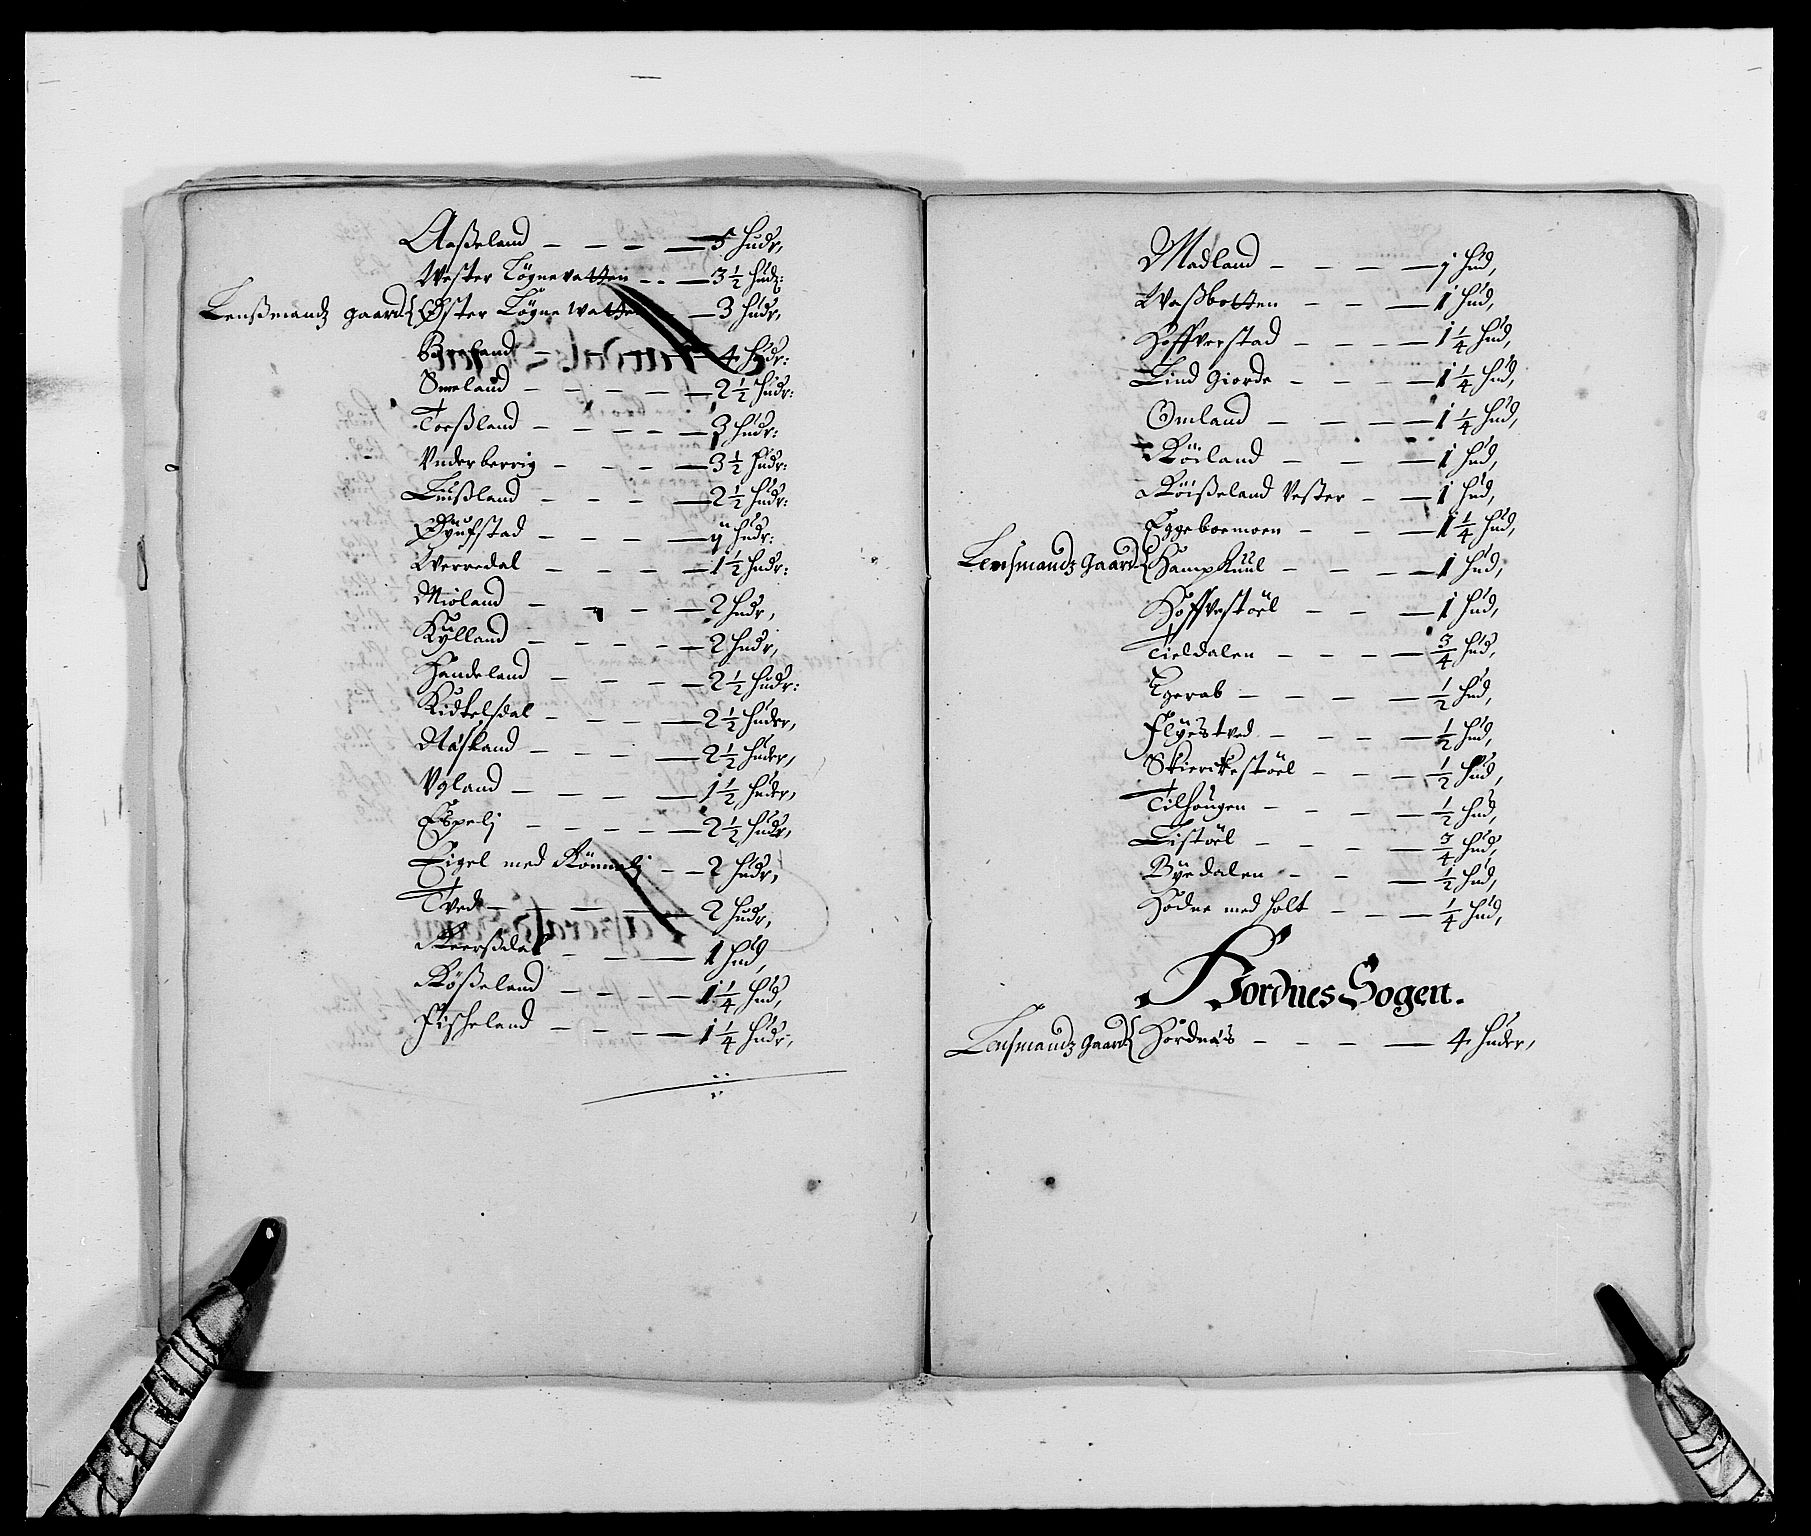 Aaßeland - - - - 5 hudr,
Wester Løgnevatten - - - 3 1/2 hudr:
Lenßmandz gaard { Øster Løgne watten - 3 hudr,
- 4 hudr:
Smeland - - - - - 2 1/2 hudr:
Toeßland - - - - - 3 hudr:
Vnderberrig - - - - 3 1/2 hudr:
Liußland - - - - 2 1/2 hudr:
Øyufstad - - - - ij hudr:
Werredal - - - - 1 1/2 hudr:
Mioland - - - - 2 hudr,
Kylland - - - - - 2 hudr,
Handeland - - - - 2 1/2 hudr:
Kidtelsdal - - - - 2 1/2 huder,
Røskand - - - - 2 1/2 huder,
Vgland - - - - - 1 1/2 huder,
Espelj - - - - - 2 1/2 hudr,
Eigel med Rönnelj - - 2 hudr,
Tved - - - - 2 hudr,
- - - 1 hud,
Rößeland - - - - 1 1/4 hud,
Fischeland - - - - 1 1/4 hudr,
Madland - - - - 1 hud,
Waßbotten - - - 1 hud,
Hoffverstad - - - - 1 1/4 hud,
Lind Giorde - - - - 1 1/4 hud,
Omland - - - - 1 1/4 hud,
Röiland - - - 1 hud,
Röißeland Vester - - 1 hud,
Eggeboemoen - - - 1 1/4 hud,
Lensmandz Gaard { Hampkuul - - - - 1 hud,
Hoffvestöel - - - 1 hud,
Tieldalen - - - - 3/4 hud,
Egerab - - - - 1/2 hud,
Flyestved - - - - 1/2 hud,
Skierckestöel - - - 1/2 hud,
Tilhougen - - - - 1/2 hud,
Listöel - - - - 3/4 hud,
Byedalen - - - 1/2 hud,
Hodne med holt - - - 1/4 hud,
Hordnes Sogen.
Lensmandz Gaard { Hordnæs - - - - 4 huder,